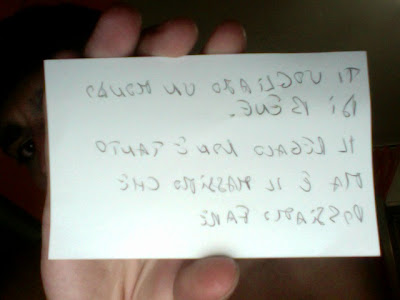 TI VOGLIAMO UN MONDO
DI BENE.
IL REGALO NON È TANTO
MA È IL MASSIMO CHE
POSSIAMO FARE